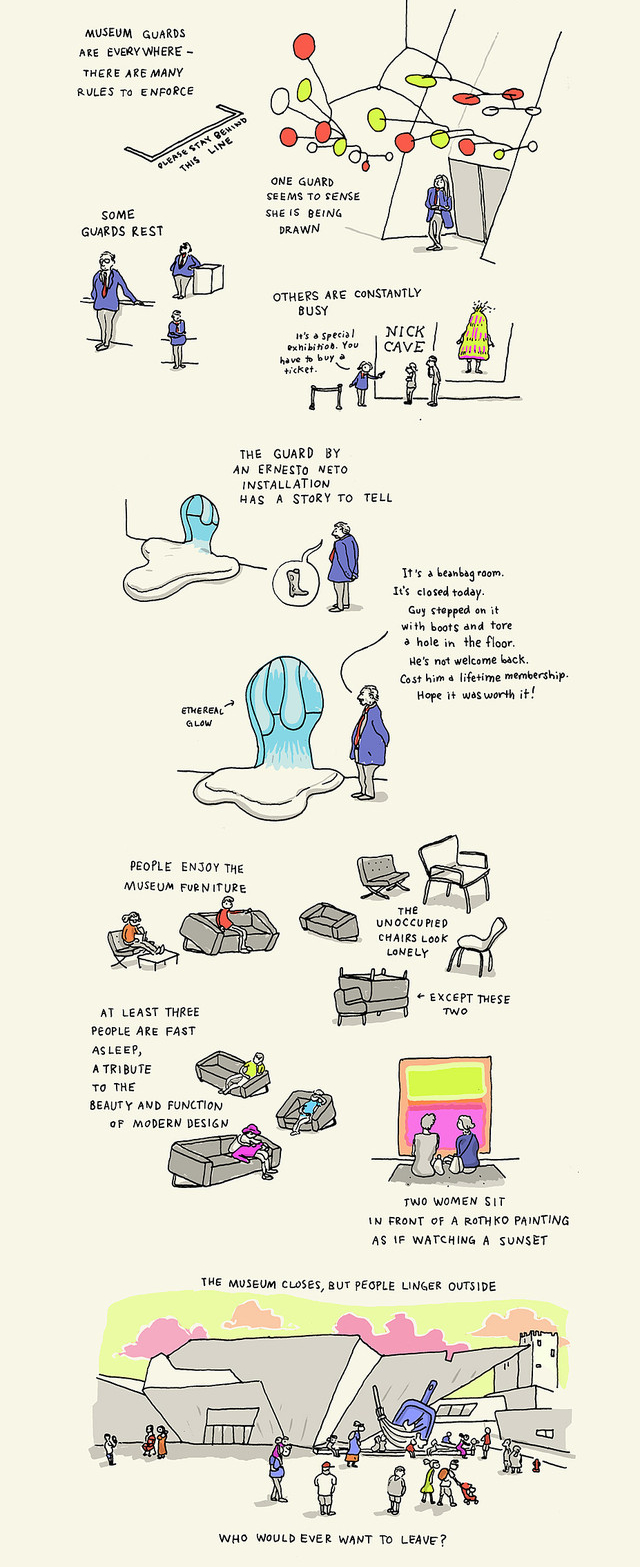 MUSEUM GUARDS
ARE EVERYWHERE –
THERE ARE MANY
RULES TO ENFORCE
PLEASE STAY BEHIND
THIS LINE
ONE GUARD
SEEMS TO SENSE
SHE IS BEING
DRAWN
SOME
GUARDS REST
OTHERS ARE CONSTANTLY
BUSY
It's a special
exhibition. You
have to buy a
ticket.
NICK
CAVE
THE GUARD BY
AN ERNESTO NETO
INSTALLATION
HAS A STORY TO TELL
It's a beanbag room.
It's closed today.
Guy stepped on it
with boots and tore
a hole in the floor.
He's not welcome back.
Cost him a lifetime membership.
Hope it was worth it!
ETHEREAL
GLOW
PEOPLE ENJOY THE
MUSEUM FURNITURE
THE
UNOCCUPIED
CHAIRS LOOK
LONELY
← EXCEPT THESE
TWO
AT LEAST THREE
PEOPLE ARE FAST
ASLEEP,
A TRIBUTE
TO THE
BEAUTY AND FUNCTION
OF MODERN DESIGN
TWO WOMEN SIT
IN FRONT OF A ROTHKO PAINTING
AS IF WATCHING A SUNSET
THE MUSEUM CLOSES, BUT PEOPLE LINGER OUTSIDE
WHO WOULD EVER WANT TO LEAVE?